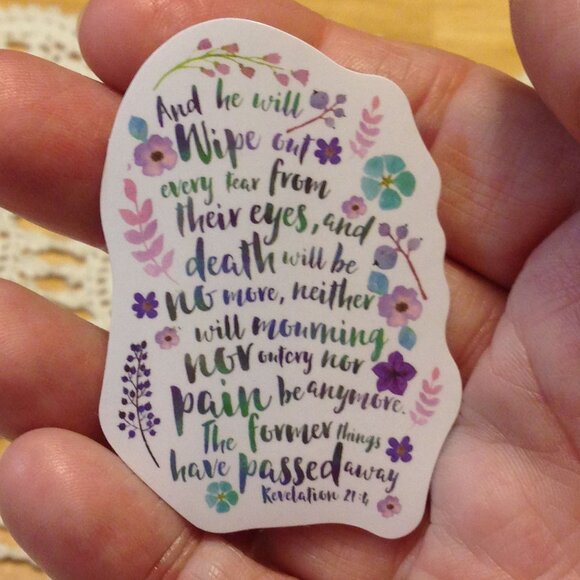 And he will
Wipe out
every tear from
their eyes, and
death will be
no more, neither
will mourning
nor outcry nor
pain be anymore.
The former things
have passed away
Revelation 21:4